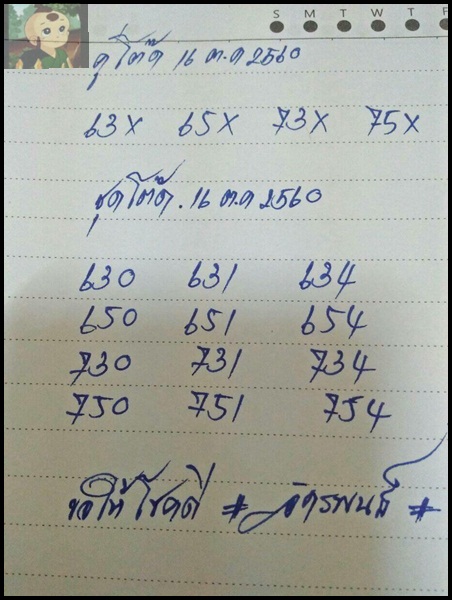 S M T W T F
คู่โต๊ด 16 ต.ค 2560
63X 65X 73X 75X
ชุดโต๊ด. 16 ต.ค 2560
630 631 634
650 651 654
730 731 734
750 751 754
ขอให้โชคดี # #